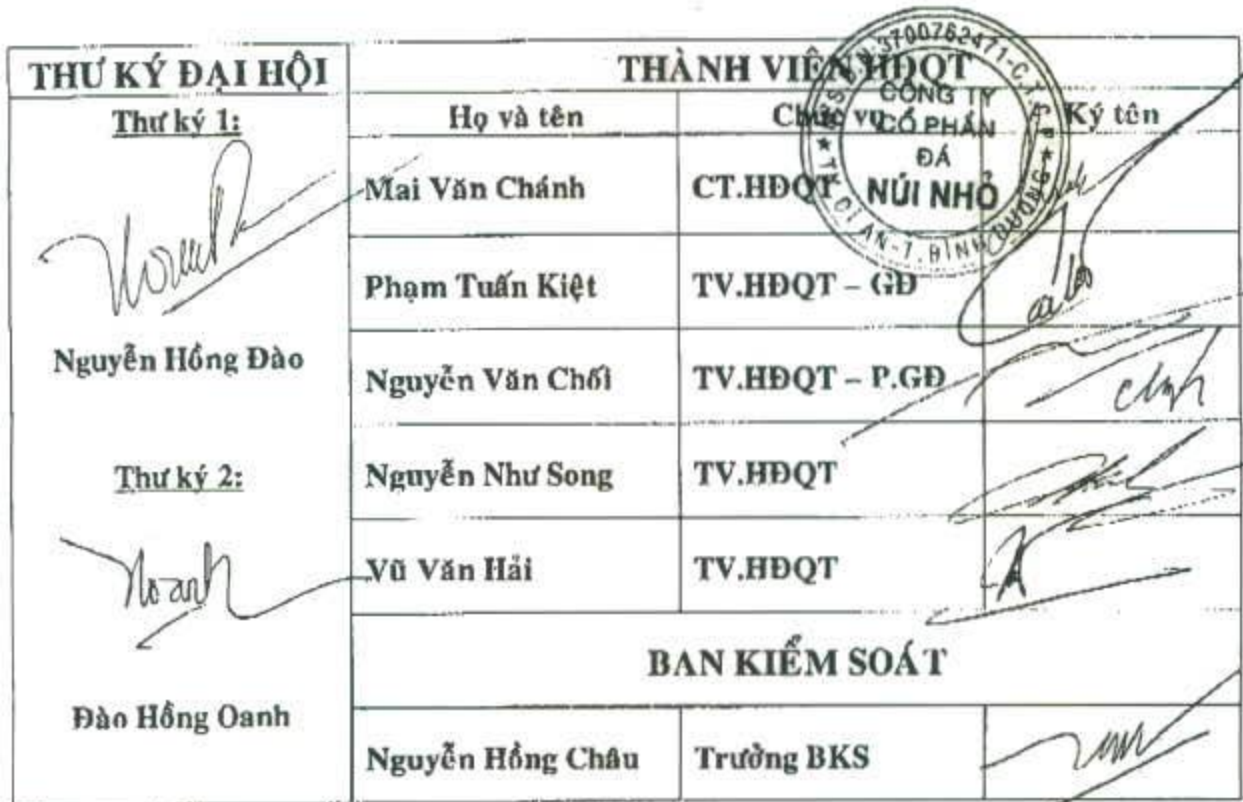 THƯ KÝ ĐẠI HỘI
Thư ký 1:
Nguyễn Hồng Đào
Thư ký 2:
Đào Hồng Oanh
THÀNH VIÊN HĐQT
Họ và tên Chức vụ Ký tên
Mai Văn Chánh CT.HĐQT
Phạm Tuấn Kiệt TV.HĐQT – GĐ
Nguyễn Văn Chối TV.HĐQT – P.GĐ
Nguyễn Như Song TV.HĐQT
Vũ Văn Hải TV.HĐQT
BAN KIỂM SOÁT
Nguyễn Hồng Châu Trưởng BKS
3700762471-C.T.C.P
CÔNG TY
CỔ PHẦN
ĐÁ
NÚI NHỎ
TX.DĨ AN-T.BÌNH DƯƠNG